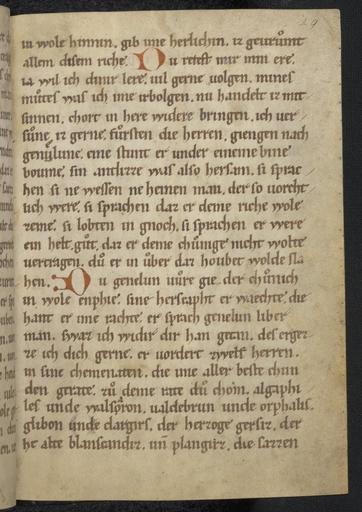 29
in wole hinnin. gib ime herlichin. iz gezrůmt
allem disem riche. Du retest mir min ere.
ia wil ich dinir lere. uil gerne uolgen. mines
můtes was ich ime irbolgen. nu handelt iz mit
sinnen. chort in here widere bringen. ich uer
sůne. iz gerne. fůrsten die herren. giengen nach
genilune. eine stunt er under eineme bine
boume. sin antlizze was also hersam. si sprac
hen si ne wessen ne heinen man. der so uorcht
lich were. si sprachen daz er deme riche wole
zeme. si lobten in gnoch. si sprachen er were
ein helt. gůt. daz er deme chuinge nicht wolte
uertragen. dů er in ůber daz houbet wolde sla
hen. Du genelun uůre gie. der chůnich
in wole enphie. sine herscapht er wachte. die
hant er ime rachte. er sprach genelun liber
man. swaz ich widir dir han getan. des erger
ze ich dich gerne. er uordert zwelf herren.
in sine chemenaten. die ime aller beste chun
den gerate. zů deme rate dů chom. algaphi
les unde walspron. ualdebrun unde orphalis.
glibon unde dargirs. der herzoge gersiz. der
ht alte blanscandiz. uñ plangirz. die sarzen